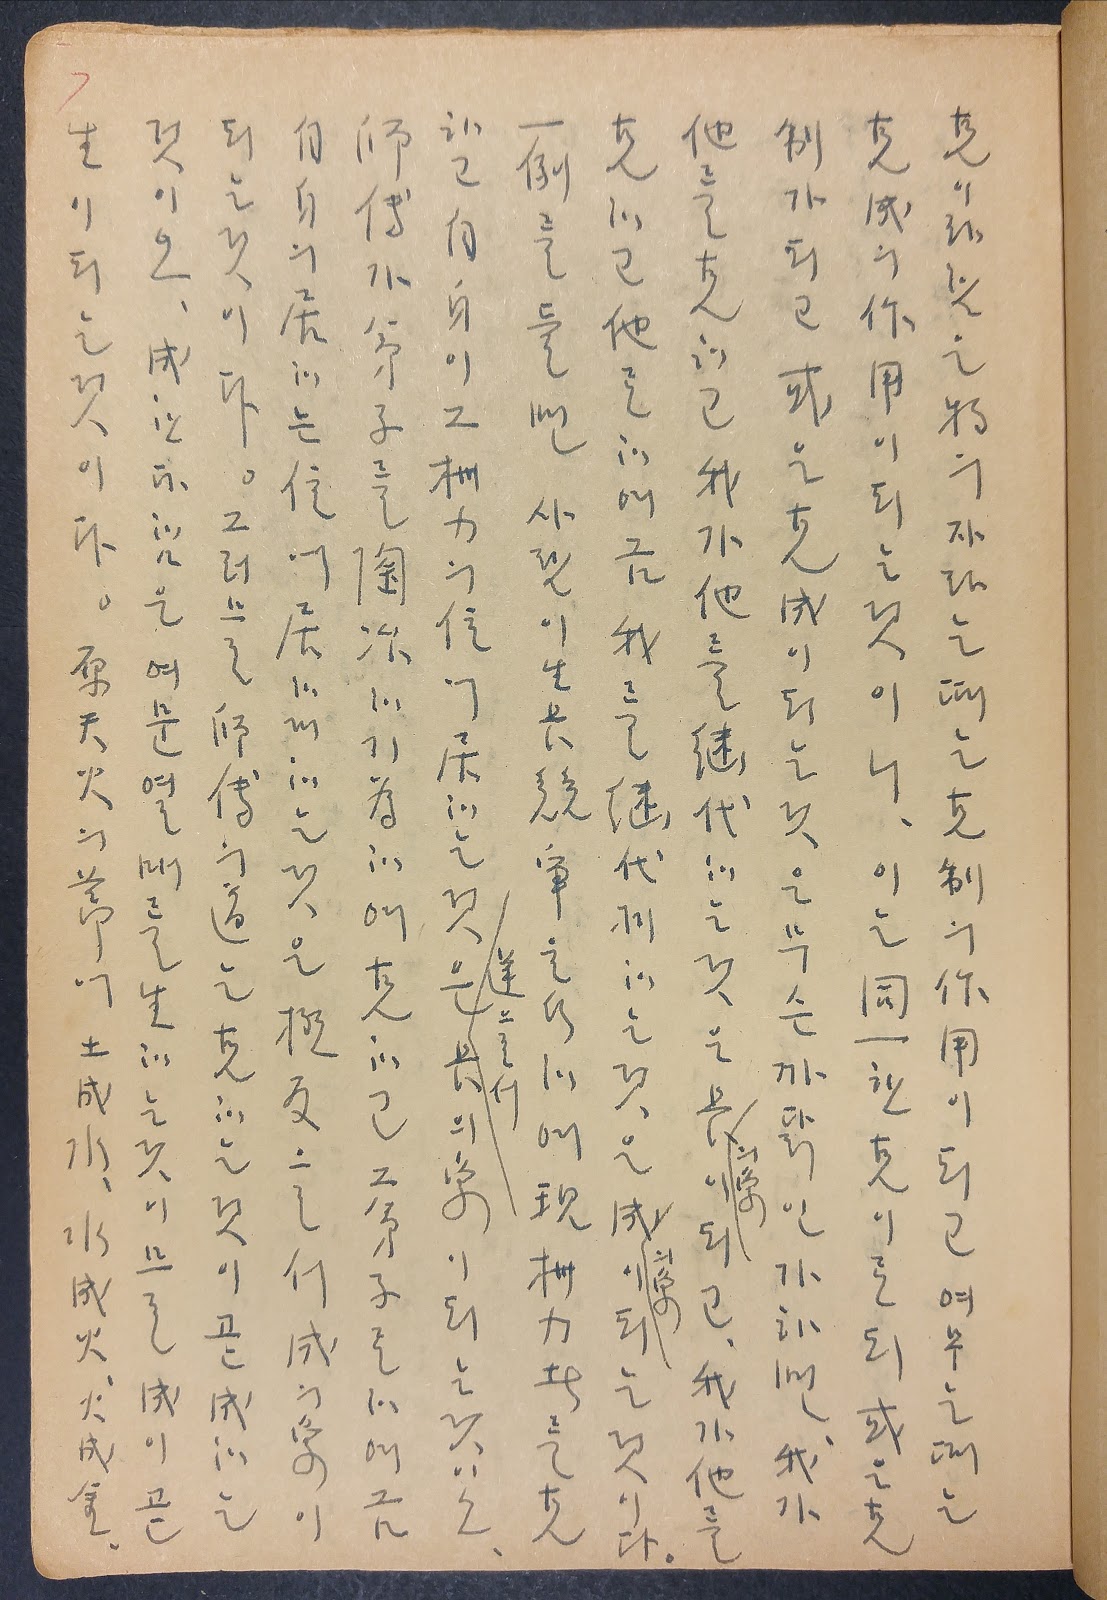 克이라 것은 物의 자라는 때는 克制의 作用이 되고 여무는 때는
克成의 作用이 되는 것이니、이는 同一한 克이로되 或은 克
制가 되고 或은 克成이 되는 것은 무슨 까닭인가 하면、我가
他를 克하고 我가 他를 継代하는 것은 長의象이 되고、我가 他를
克하고 他로 하여금 我를 継代케 하는 것은 成의象이 되는 것이다。
一例를 들면 사람이 生長競争을 하여 現 권力者를 克
하고 自身이 그 권力의 位에 居하는 것은 長의 象이 되는 것이오、
師傅가 弟子를 陶冶하기 爲하여 克하고 그 弟子로 하여금
自身의 居하는 位에 居하게 하는 것은 極 으로서 成의 象이
되는 것이다。그러므로 師傅의 道는 克하는 것이 곧 成하는
것이오、成 은 여문 열매를 生하는 것이므로 成이 곧
生이 되는 것이다。 天火의 節에 土成水、水成火、火成金、
逆으로서
7